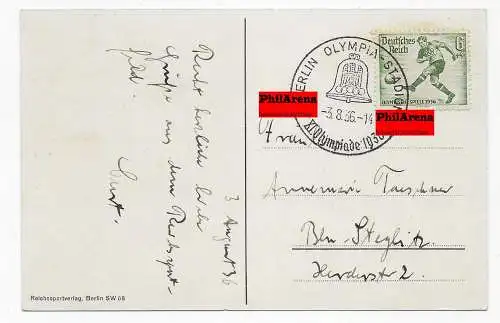 Recht herzliche liebe
Grüße aus dem Reichssport-
feld.
Curt.
3 August 36
Reichssportverlag, Berlin SW 68
BERLIN OLYMPIA-STADION
-3.8.36.-14
XI.Olympiade 1936
PhilArena
PhilArena
Deutsches
Reich
6
OLYMPISCHE SPIELE 1936
Frau
Annemarie Taeschner
Bln-Steglitz
Herderstr 2.